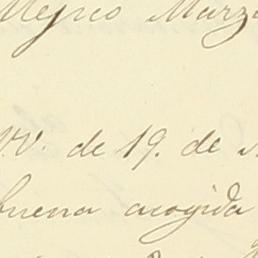 Mejico Marzo
V.V. de 19. de
buena acogida